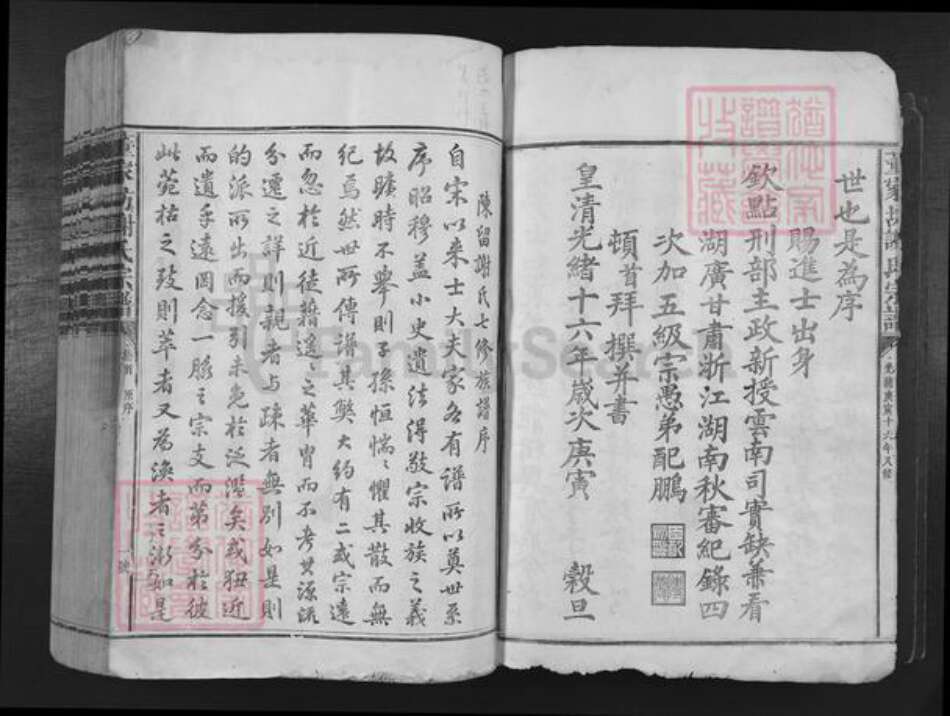 世也是為序
賜進士出身
欽點刑部主政新授雲南司實缺兼看
湖廣甘肅浙江湖南秋審紀錄四
次加五級宗愚弟配鵬
頓首拜 撰并書
皇清光緒十六年歲次庚寅 穀旦
陳留謝氏七修族譜序
自宋以来士大夫家各有譜所以奠世系
序昭穆蓋小史遺法得敬宗收族之義
故曠時不舉則子孫恒惴〻懼其散而無
紀焉然世所傳譜其弊大約有二或宗遠
而忽於近徒藉遥〻之華胄而不考其源流
分遷之詳則親者与疎者無别如是則
的派所出而援引未免於泛濫矣或狃近
而遺乎遠罔念一脈之宗支而第分於彼
此菀枯之致則萃者又為渙者之漸如是
FamilySearch